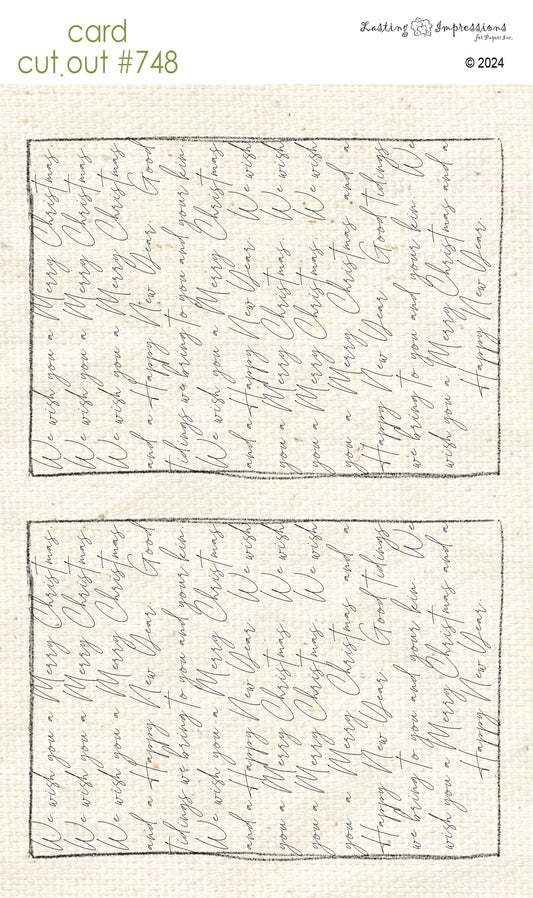 card
cut out #748
Lasting Impressions
for Paper, Inc.
© 2024
We wish you a Merry Christmas.
We wish you a Merry Christmas.
We wish you a Merry Christmas
and a Happy New Year. Good
tidings we bring to you and your kin.
We wish you a Merry Christmas
and a Happy New Year. We wish
you a Merry Christmas. We wish
you a Merry Christmas. We wish
you a Merry Christmas and a
Happy New Year. Good tidings
we bring to you and your kin. We
wish you a Merry Christmas and a
Happy New Year.
We wish you a Merry Christmas.
We wish you a Merry Christmas.
We wish you a Merry Christmas
and a Happy New Year. Good
tidings we bring to you and your kin.
We wish you a Merry Christmas
and a Happy New Year. We wish
you a Merry Christmas. We wish
you a Merry Christmas. We wish
you a Merry Christmas and a
Happy New Year. Good tidings
we bring to you and your kin. We
wish you a Merry Christmas and a
Happy New Year.